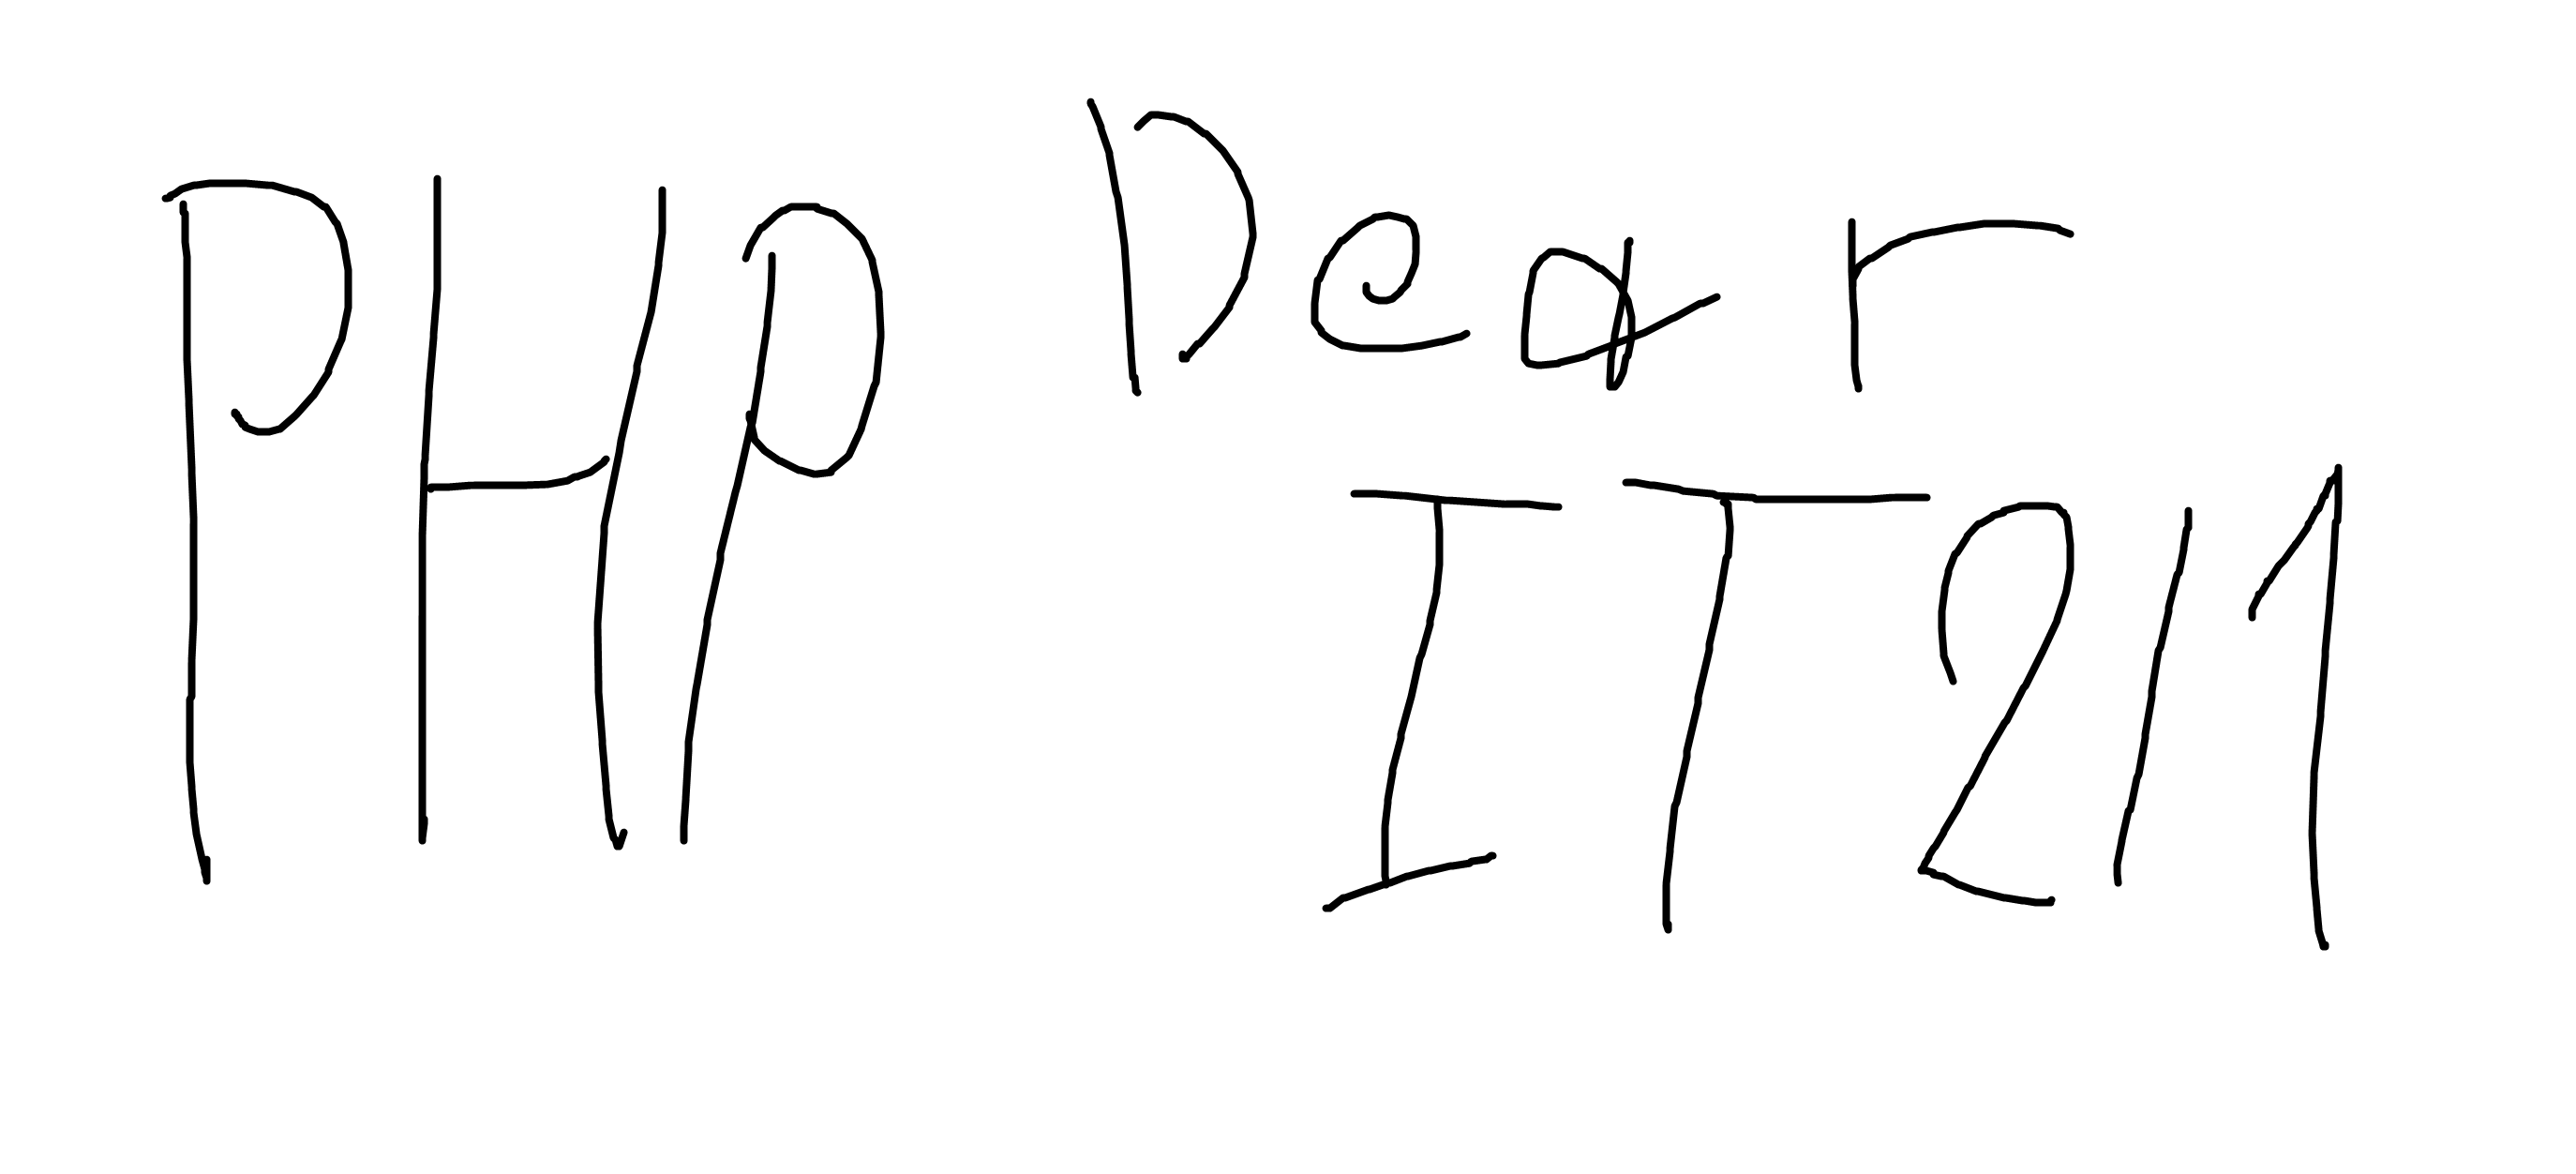 PHP Dear
IT211